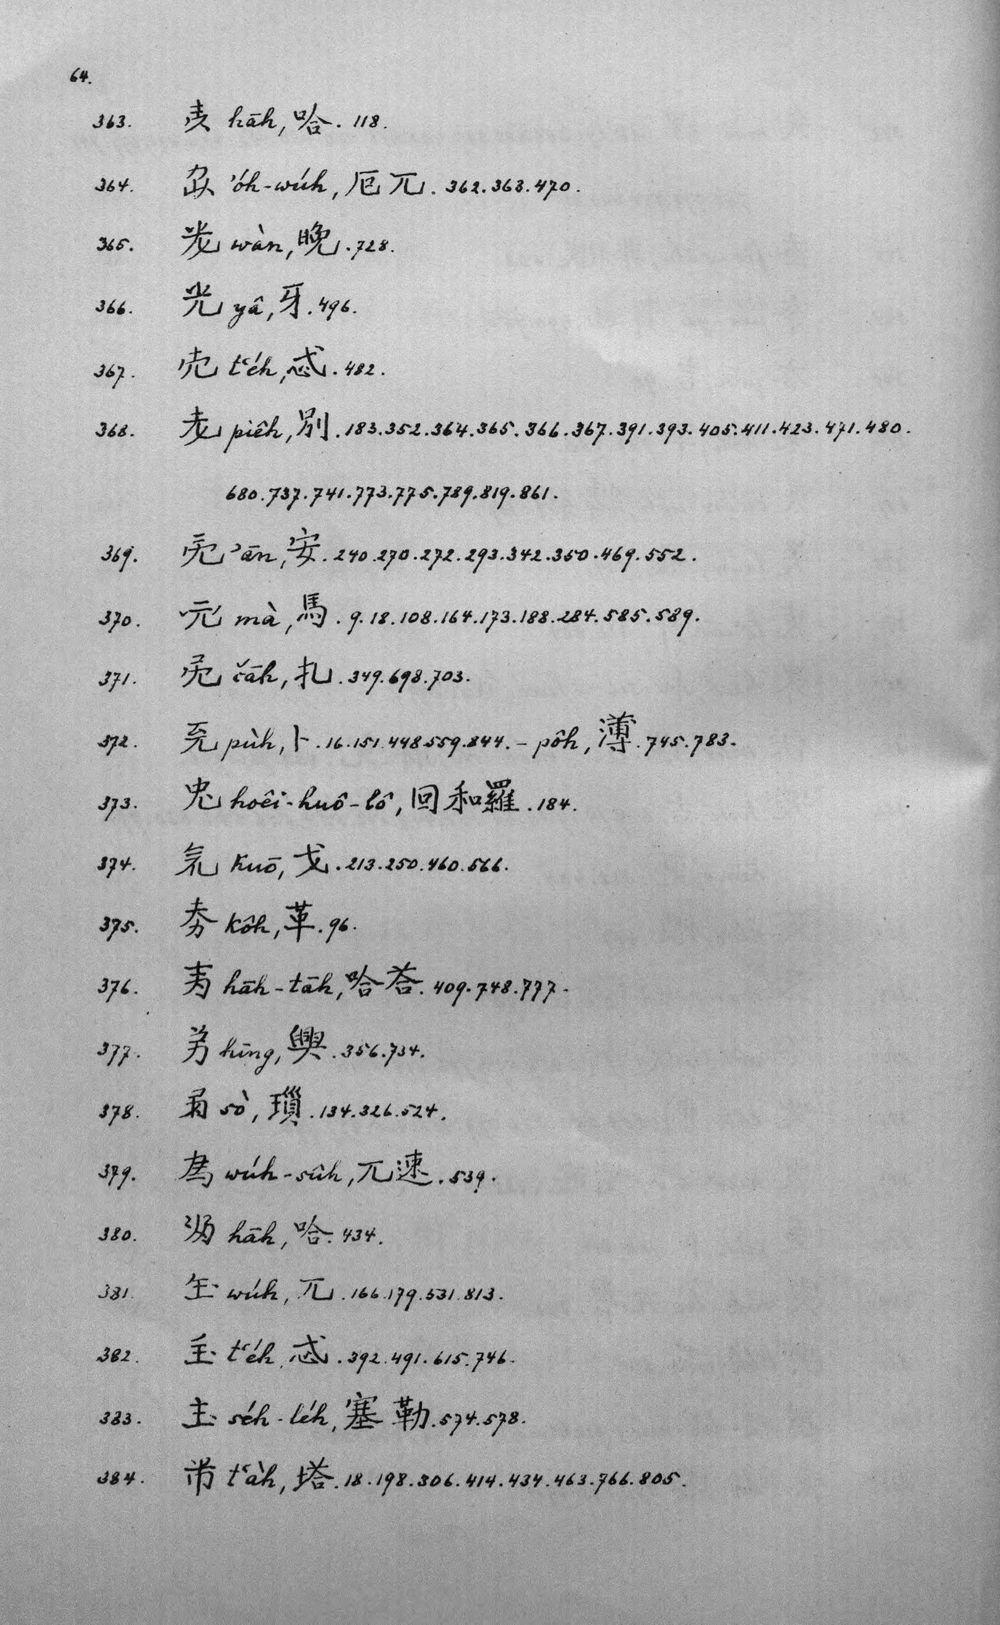 64.
363. hāh, 哈. 118.
364. 'óh-wúh, 厄兀. 362.368.470.
365. wàn, 晩. 728.
366. yâ, 牙. 496.
367. t'éh, 忒. 482.
368. piêh, 別. 183.352.364.365.366.367.391.393.405.411.423.471.480.
680.737.741.773.775.789.819.861.
369. 'ān, 安. 240.270.272.293.342.350.469.552.
370. mà, 馬. 9.18.108.164.173.188.284.585.589.
371. čāh, 扎. 349.698.703.
372. pùh, 卜. 16.151.448.559.844. – pôh, 薄. 745.783.
373. hoêi-huô-lô, 回和羅. 184.
374. kuō, 戈. 213.250.460.566.
375. kôh, 革. 96.
376. hāh-tāh, 哈荅. 409.748.777.
377. hīng, 興. 356.734.
378. sò, 瑣. 134.326.524.
379. wúh-sûh, 兀速. 539.
380. hāh, 哈. 434.
381. wúh, 兀. 166.179.531.813.
382. t'éh, 忒. 392.491.615.746.
383. séh-léh, 塞勒. 574.578.
384. t'àh, 塔. 18.198.306.414.434.463.766.805.